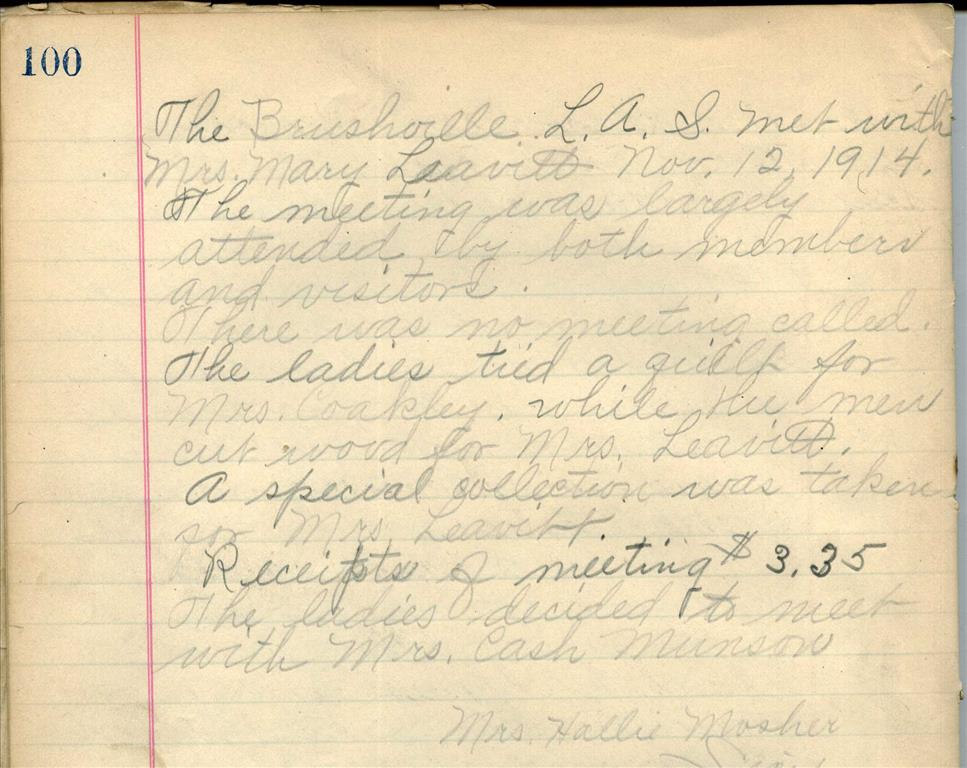 100
The Brushville L. A. S. met with
Mrs. Mary Leavitt Nov. 12, 1914.
The meeting was largely
attended by both members
and visitors.
There was no meeting called.
The ladies tied a quilt for
Mrs. Coakley. while the men
cut wood for Mrs. Leavitt.
A special collection was taken
for Mrs Leavitt
Receipts of meeting $3.35
The ladies decided to meet
with Mrs. Cash Munson
Mrs. Hallie Mosher